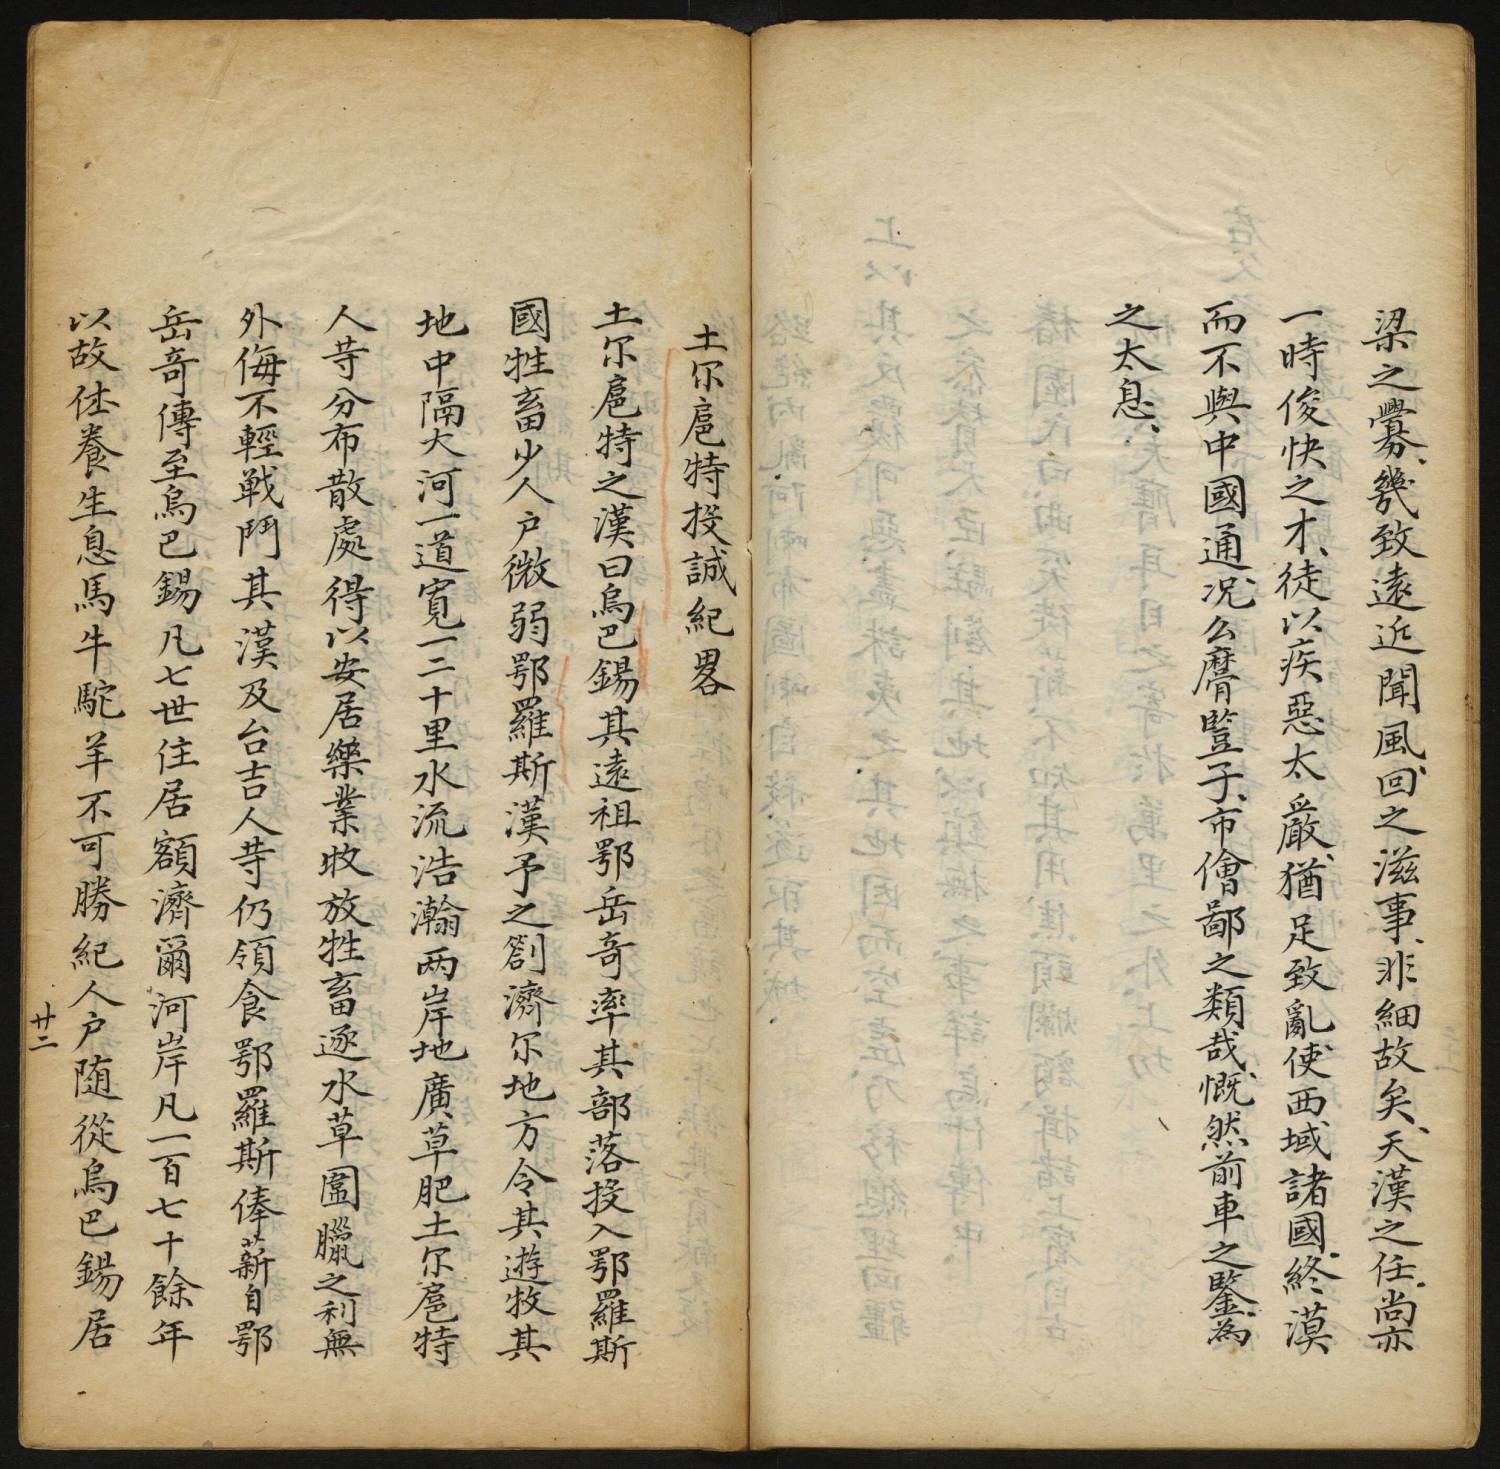 梁之釁幾致遠近聞風回之滋事非細故矣天漢之任尚亦
一時俊快之才徒以疾惡太嚴猶足致亂使西域諸國終漠
而不與中國通况么麿豎子市儈鄙之類哉慨然前車之鑒為
之太息
土尔扈特投誠紀畧
土尔扈特之漢曰烏巴錫其遠祖鄂岳竒率其部落投入鄂羅斯
國牲畜少人户微弱鄂羅斯漢予之劄濟尔地方令其遊牧其
地中隔大河一道寛一二十里水流浩瀚两岸地廣草肥土尔扈特
人䓁分布散處得以安居樂業收放牲畜逐水草圍臘之利無
外侮不輕戰鬥其漢及台吉人䓁仍領食鄂羅斯俸薪自鄂
岳竒傳至烏巴錫凡七世住居額濟爾河岸凡一百七十餘年
以故仕養生息馬牛駝羊不可勝紀人户随從烏巴錫居
廿二